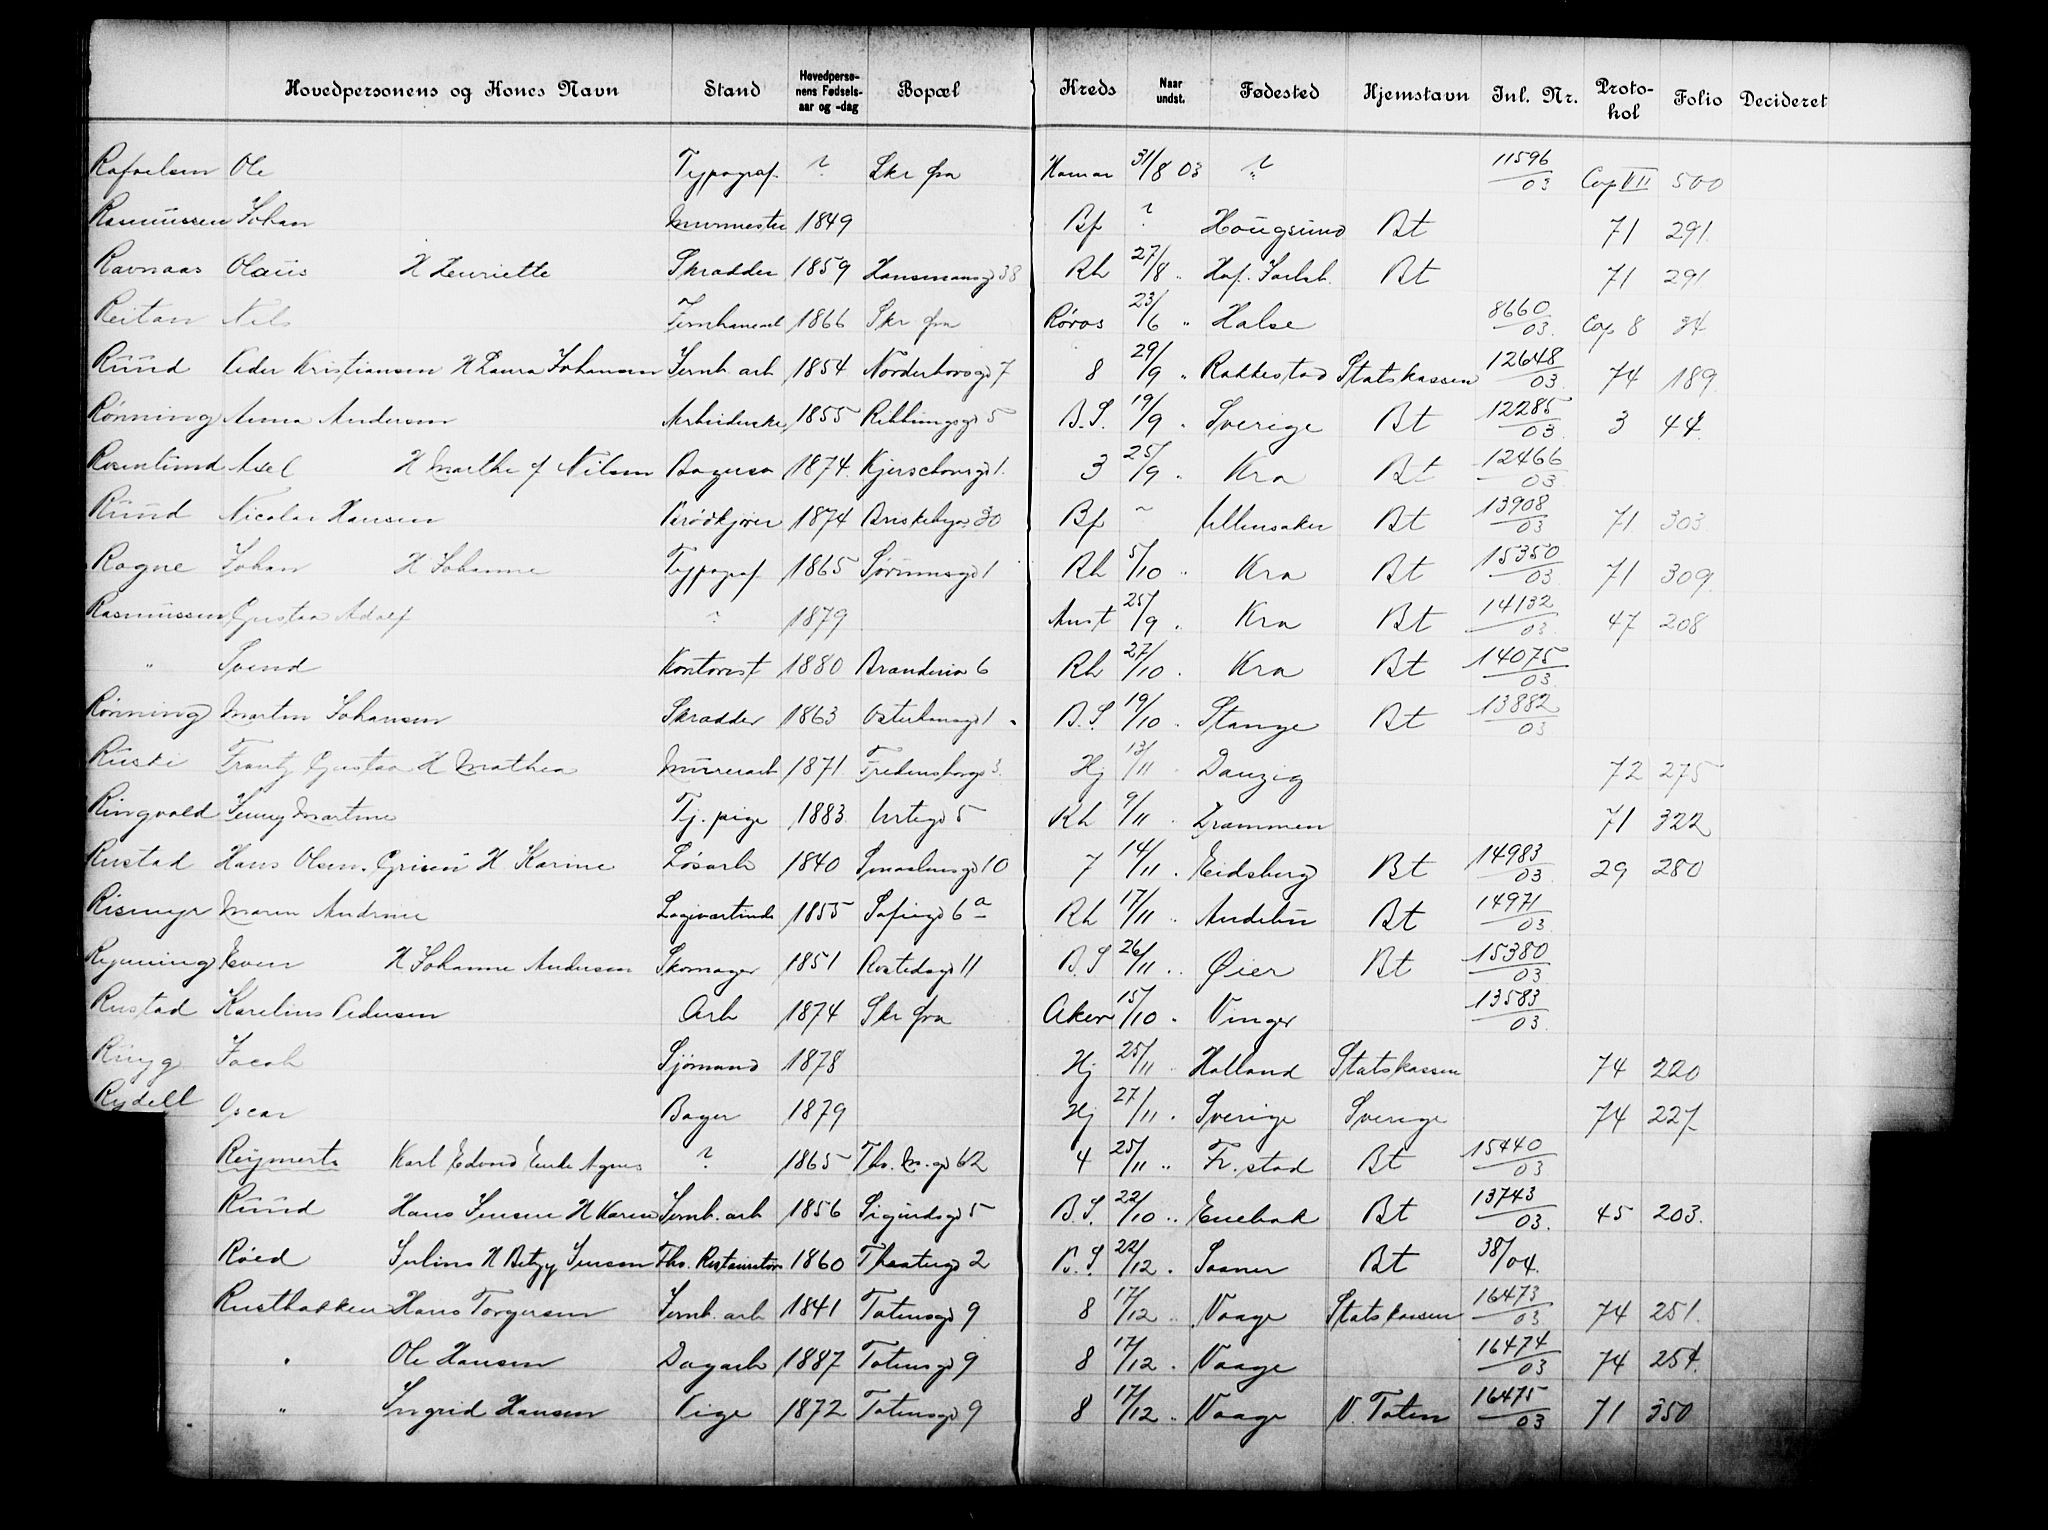 Hovedpersonens og Kones Navn Stand Hovedpersonens Fødselsaar og -dag Bopæl Kreds Naar undst. Fødested Hjemstavn Inl. Nr. Protokol Folio Decideret
Rafaelsen Ole Typograf ? Skr fra Hamar 31/8 03 ? 11596/03 Cop VII 500
Rasmussen Johan Murmester 1849 Bf ? Hougsund Bt 71 291
Ravnaas Olaus H Henriette Skrædder 1859 Hausmansgd 38 Rh 27/8 " Hof. Jarlsb. Bt 71 291
Reitan Nils 1866 Skr fra Røros 23/6 " Halse 8660/03 Cop 8 34
Ruud Peder Kristiansen H Laura Johansen Jernb. arb 1854 Norderhovsgd 7 8 29/9 " Rakkestad Statskassen 12648/03 74 189
Rønning Anna Andersen Arbeiderske 1855 Ribbungsgd 5 B.S. 19/9 " Sverige Bt 12285/03 3 44
Rosenlund Axel H Marthe f Nilsen Bagersv 1874 Kjerschowsgd 1 3 25/9 " Kra Bt 12466/03
Ruud Nicolai Hansen Brødkjører 1874 Briskebyv 30 Bf ~ Ullensaker Bt 13908/03 71 303
Rogne Johan H Johanne Typograf 1865 Sørumsgd 1 Rh 5/10 " Kra Bt 15350/03 71 309
Rasmussen Gustav Adolf ? 1879 Anst 25/9 " Kra Bt 14132/03 47 208
" Svend Kontorist 1880 6 Rh 27/10 " Kra Bt 14075/03
Rønning Martin Johansen Skrædder 1863 Osterhausgd 1 B.S 19/10 " Stange Bt 13882/03
Ruski Frantz Gustav H Mathea Murerarb 1871 Fredensborgv 3 Hj 13/11 " Danzig 72 275
Ringvold Jenny Martine Tj. pige 1883 Urtegd 5 Rh 9/11 " Drammen 71 322
Rustad Hans Olsen H Karine Løsarb 1840 Smaalensgd 10 7 14/11 " Eidsberg Bt 14983/03 29 280
Rismyr Maren Andrine Logivertinde 1855 Sofiegd 6a Rh 17/11 " Andebu Bt 14971/03
Even H Johanne Andersen Skomager 1851 Rostedsgd 11 B.S 26/11 " Øier Bt 15380/03
Rustad Karelius Pedersen Arb 1874 Skr fra Aker 15/10 " Vinger 13583/03
Jacob Sjømand 1878 Hj 25/11 " Holland Statskassen 74 220
Rydell Oscar Bager 1879 Hj 27/11 " Sverige Sverige 74 227
Reymerts Karl Edvard Enke Agnes ? 1865 Th. M. gd 62 4 25/11 " Fr. stad Bt 15440/03
Ruud Hans Jensen H Karen Jernb. arb 1856 Sigurdsgd 5 B.S. 22/10 " Enebak Bt 13743/03 45 203
Røed Julius H Betzy Jensen Fhv. Restauratør 1860 Theatergd 2 B.S. 22/12 " Saaner Bt 38/04
Rustbakken Hans Torgersen Jernb. arb 1841 Totensgd 9 8 17/12 " Vaage Statskassen 16473/03 74 251
" Ole Hansen Dagarb 1887 Totensgd 9 8 17/12 " Vaage 16474/03 74 254
" Ingrid Hansen Pige 1872 Totensgd 9 8 17/12 " Vaage V. Toten 16475/03 71 350